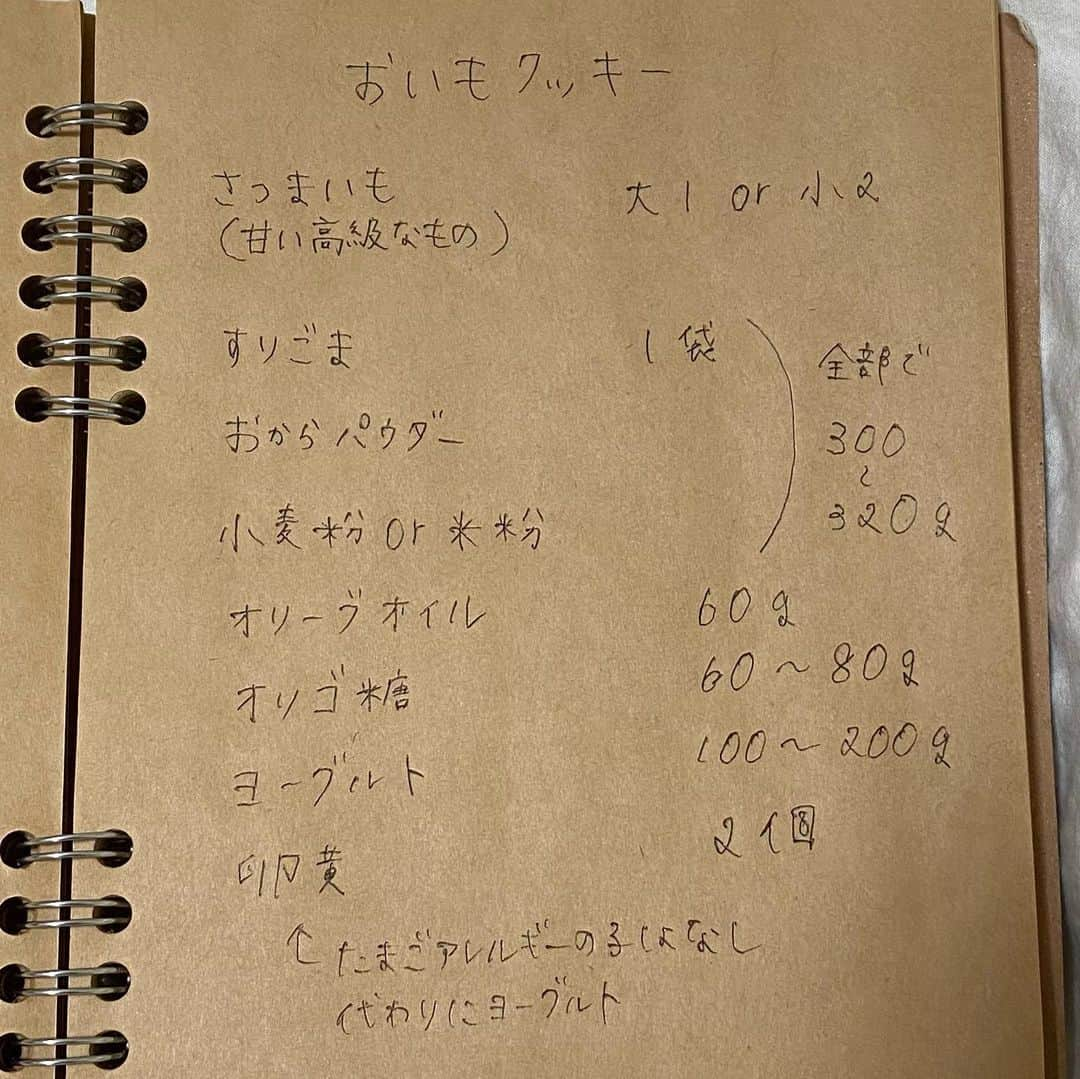 おいもクッキー
さつまいも 大1 or 小2
(甘い高級なもの)
すりごま 1袋
全部で
おからパウダー 300
〜
小麦粉 or 米粉 320g
オリーブオイル 60g
オリゴ糖 60〜80g
ヨーグルト 100〜200g
卵黄 2個
↑たまごアレルギーの子はなし
代わりにヨーグルト